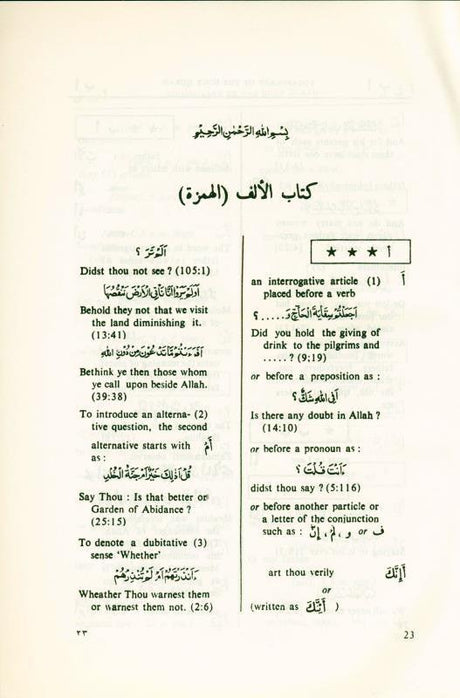 بِسْمِ اللهِ الرَّحْمٰنِ الرَّحِيْمِ
كتاب الألف (الهمزة)
أ ★ ★ ★
an interrogative article (1) أَ
placed before a verb
اَجَعَلْتُمْ سِقَايَةَ الْحَآجِّ وَ.....؟
Did you hold the giving of
drink to the pilgrims and
.....? (9;19)
or before a preposition as :
اَفِی اللهِ شَكٌّ ؟
Is there any doubt in Allah ?
(14:10)
or before a pronoun as :
ءَاَنْتَ قُلْتَ ؟
didst thou say ? (5:116)
or before another particle or
a letter of the conjunction
such as : ف or و , لَمْ , إِنَّ
art thou verily أَإِنَّكَ
or
(written as أَئِنَّكَ )
اَلَمْ تَرَ ؟
Didst thou not see ? (105:1)
اَوَلَمْ يَرَوْا اَنَّا نَأْتِی الْاَرْضَ نَنْقُصُهَا
Behold they not that we visit
the land diminishing it.
(13:41)
اَفَرَءَيْتُمْ مَّا تَدْعُوْنَ مِنْ دُوْنِ اللهِ
Bethink ye then those whom
ye call upon beside Allah.
(39:38)
To introduce an alterna- (2)
tive question, the second
alternative starts with أَمْ
as :
قُلْ اَذٰلِكَ خَيْرٌ اَمْ جَنَّةُ الْخُلْدِ
Say Thou : Is that better or
Garden of Abidance ?
(25:15)
To denote a dubitative (3)
sense 'Whether'
ءَاَنْذَرْتَهُمْ اَمْ لَمْ تُنْذِرْهُمْ
Wheather Thou warnest them
or warnest them not. (2:6)
٢٣
23